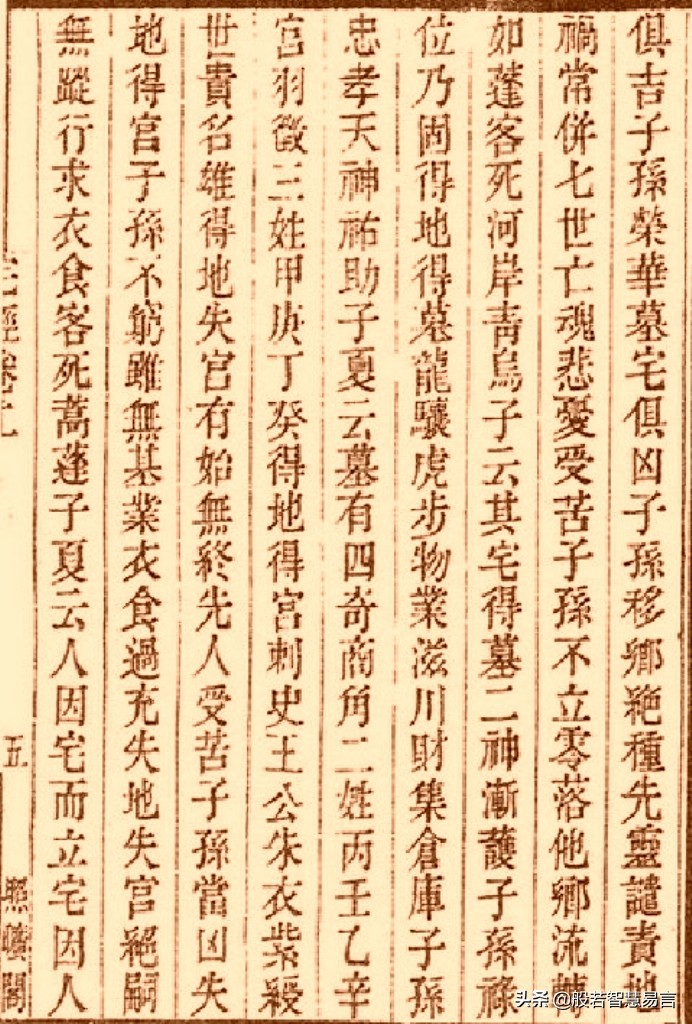 俱吉子孫榮華墓宅俱凶子孫移鄉絕種先靈譴責地
禍常併七世亡魂悲憂受苦子孫不立零落他鄉流轉
如蓬客死河岸靑烏子云其宅得墓二神漸護子孫祿
位乃固得地得墓龍驤虎步物業滋川財集倉庫子孫
忠孝天神祐助子夏云墓有四奇商角二姓丙壬乙辛
宮羽徵三姓甲庚丁癸得地得宮刺史王公朱衣紫綬
世貴名雄得地失宮有始無終先人受苦子孫當凶失
地得宮子孫不窮雖無基業衣食過充失地失宮絕嗣
無蹤行求衣食客死蒿蓬子夏云人因宅而立宅因人
五
照曠閣
头条 @般若智慧易言